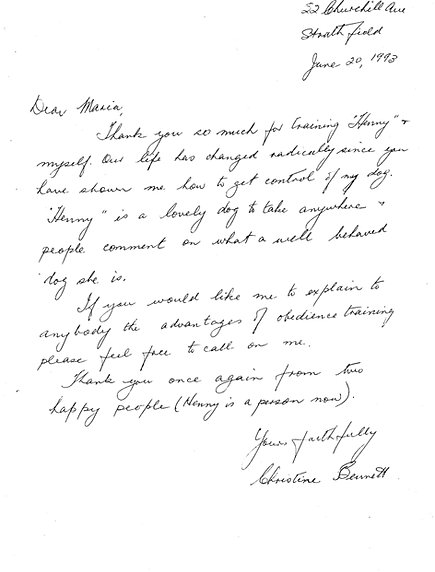 22 Churchill Ave
Strathfield
June 20, 1993
Dear Maria,
Thank you so much for training "Henny" &
myself. Our life has changed radically since you
have shown me how to get control of my dog.
"Henny" is a lovely dog to take anywhere &
people comment on what a well behaved
dog she is.
If you would like me to explain to
anybody the advantages of obedience training
please feel free to call on me.
Thank you once again from two
happy people (Henny is a person now).
Yours faithfully
Christine Bennett